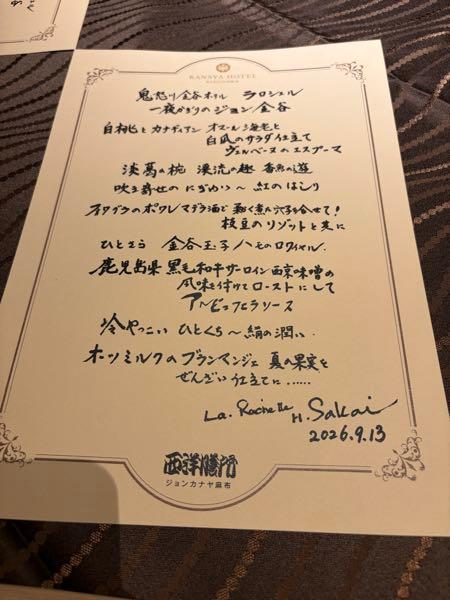 KANAYA HOTEL
鬼怒川金谷ホテル ラロシェル
一夜かぎりのジョン金谷
白桃とカナディアン オマール海老と
白瓜のサラダ仕立て
ヴェルベーヌのエスプーマ
淡葛の椀 渓流の趣 香魚の遊
吹き寄せのにぎわい〜紅のはしり
フォワグラのポワレマデラ酒で 軽く煮た穴子を合せて!
枝豆のリゾットと共に
ひとさら 金谷玉子 ハモのロワイヤル
鹿児島県黒毛和牛サーロイン西京味噌の
風味を付けてローストにして
アルビュフェラソース
冷やっこい ひとくち〜絹の潤い
ホッミルクのブランマンジェ 夏の果実を
ぜんざい仕立てに……
La. Rochelle H. Sakai
2026.9.13
西洋膳所
ジョンカナヤ麻布